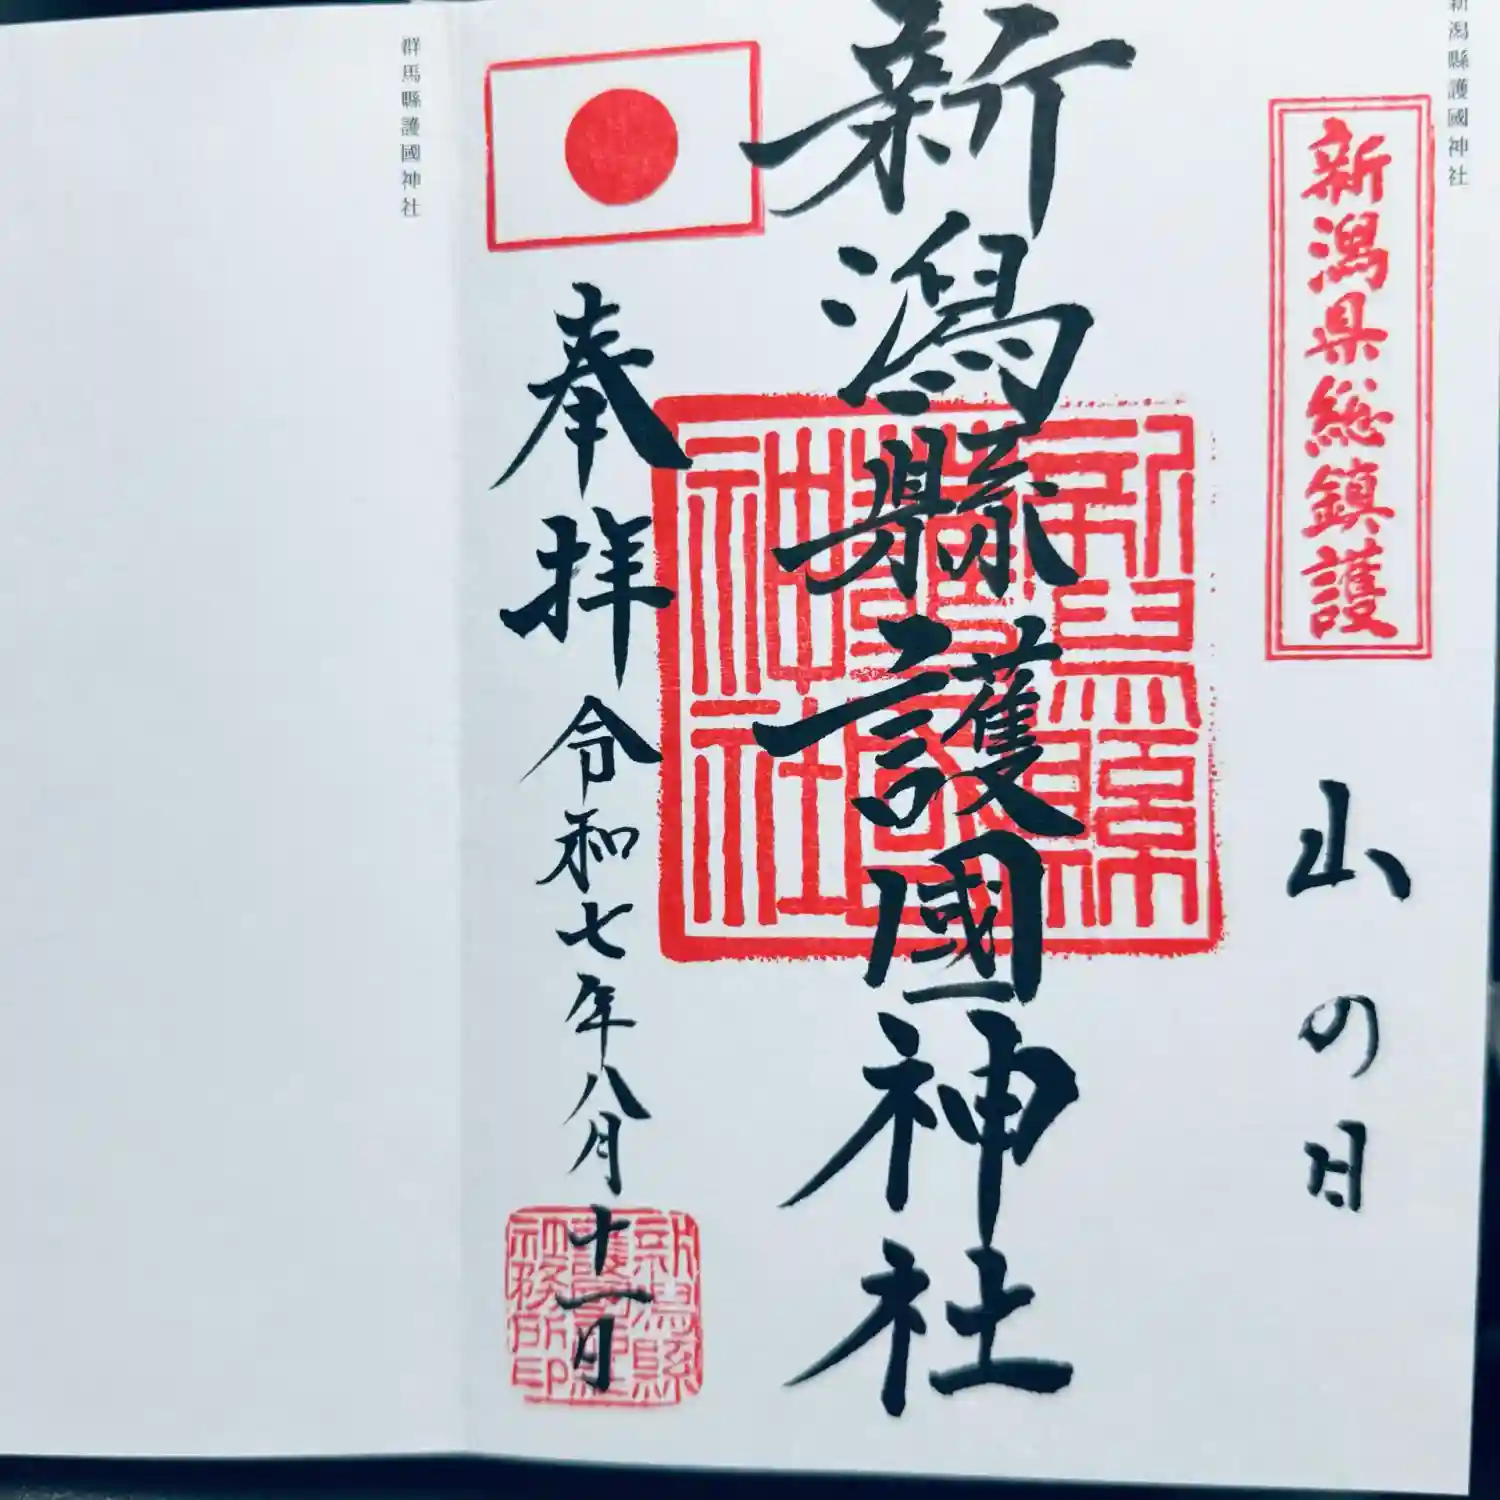 新潟縣護國神社
新潟県総鎮護
山の日
新潟縣護國神社
新潟縣護國神社
奉拝
令和七年八月十一日
新潟縣護國神社社務所印
群馬縣護國神社